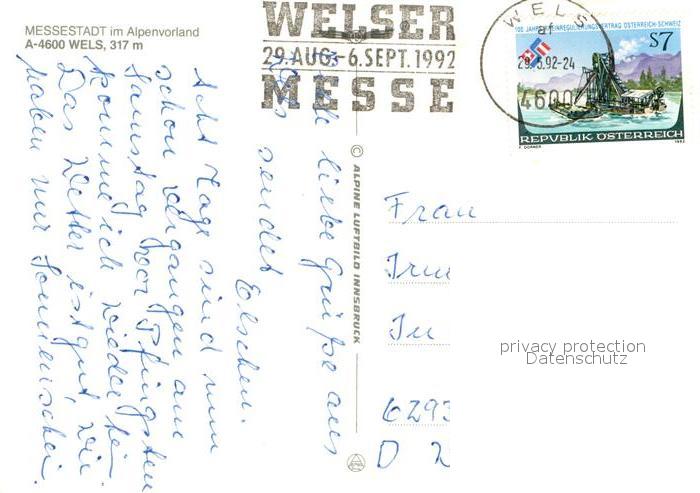 MESSESTADT im Alpenvorland
A-4600 WELS, 317 m
WELSER
29.AUG.-6.SEPT.1992
MESSE
WELS
af
29.5.92-24
4600
100 JAHRE RHEINREGULIERUNGSVERTRAG ÖSTERREICH-SCHWEIZ
S7
REPUBLIK ÖSTERREICH
1992
© ALPINE LUFTBILD INNSBRUCK
liebe Grüße aus
sendet
Elschen.
Acht Tage sind nun
schon vergangen am
Samstag vor Pfingsten
komme ich wieder heim.
Das Wetter ist gut, wir
haben nur Sonnenschein.
Frau
6293
D
privacy protection
Datenschutz